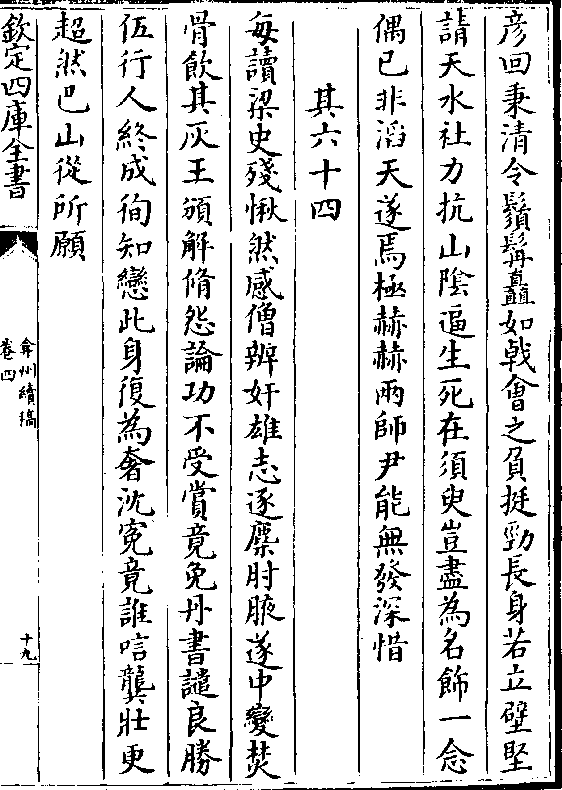 彦回秉清令鬚髯矗如㦸㑹之負挺勁長身若立壁堅
請天水社力抗山隂逼生死在須臾豈盡為名飾一念
偶已非滔天遂焉極赫赫兩師尹能無發深惜
其六十四
每讀梁史殘愀然感僧辨奸雄志逐麋肘腋遂中變焚
骨飲其灰王頒解脩怨論功不受賞竟免丹書譴良勝
伍行人終成徇知戀此身復為奢沈寃竟誰唁龔壯更
超然巴山從所願
欽定四庫全書
弇州續稿
卷四
十九